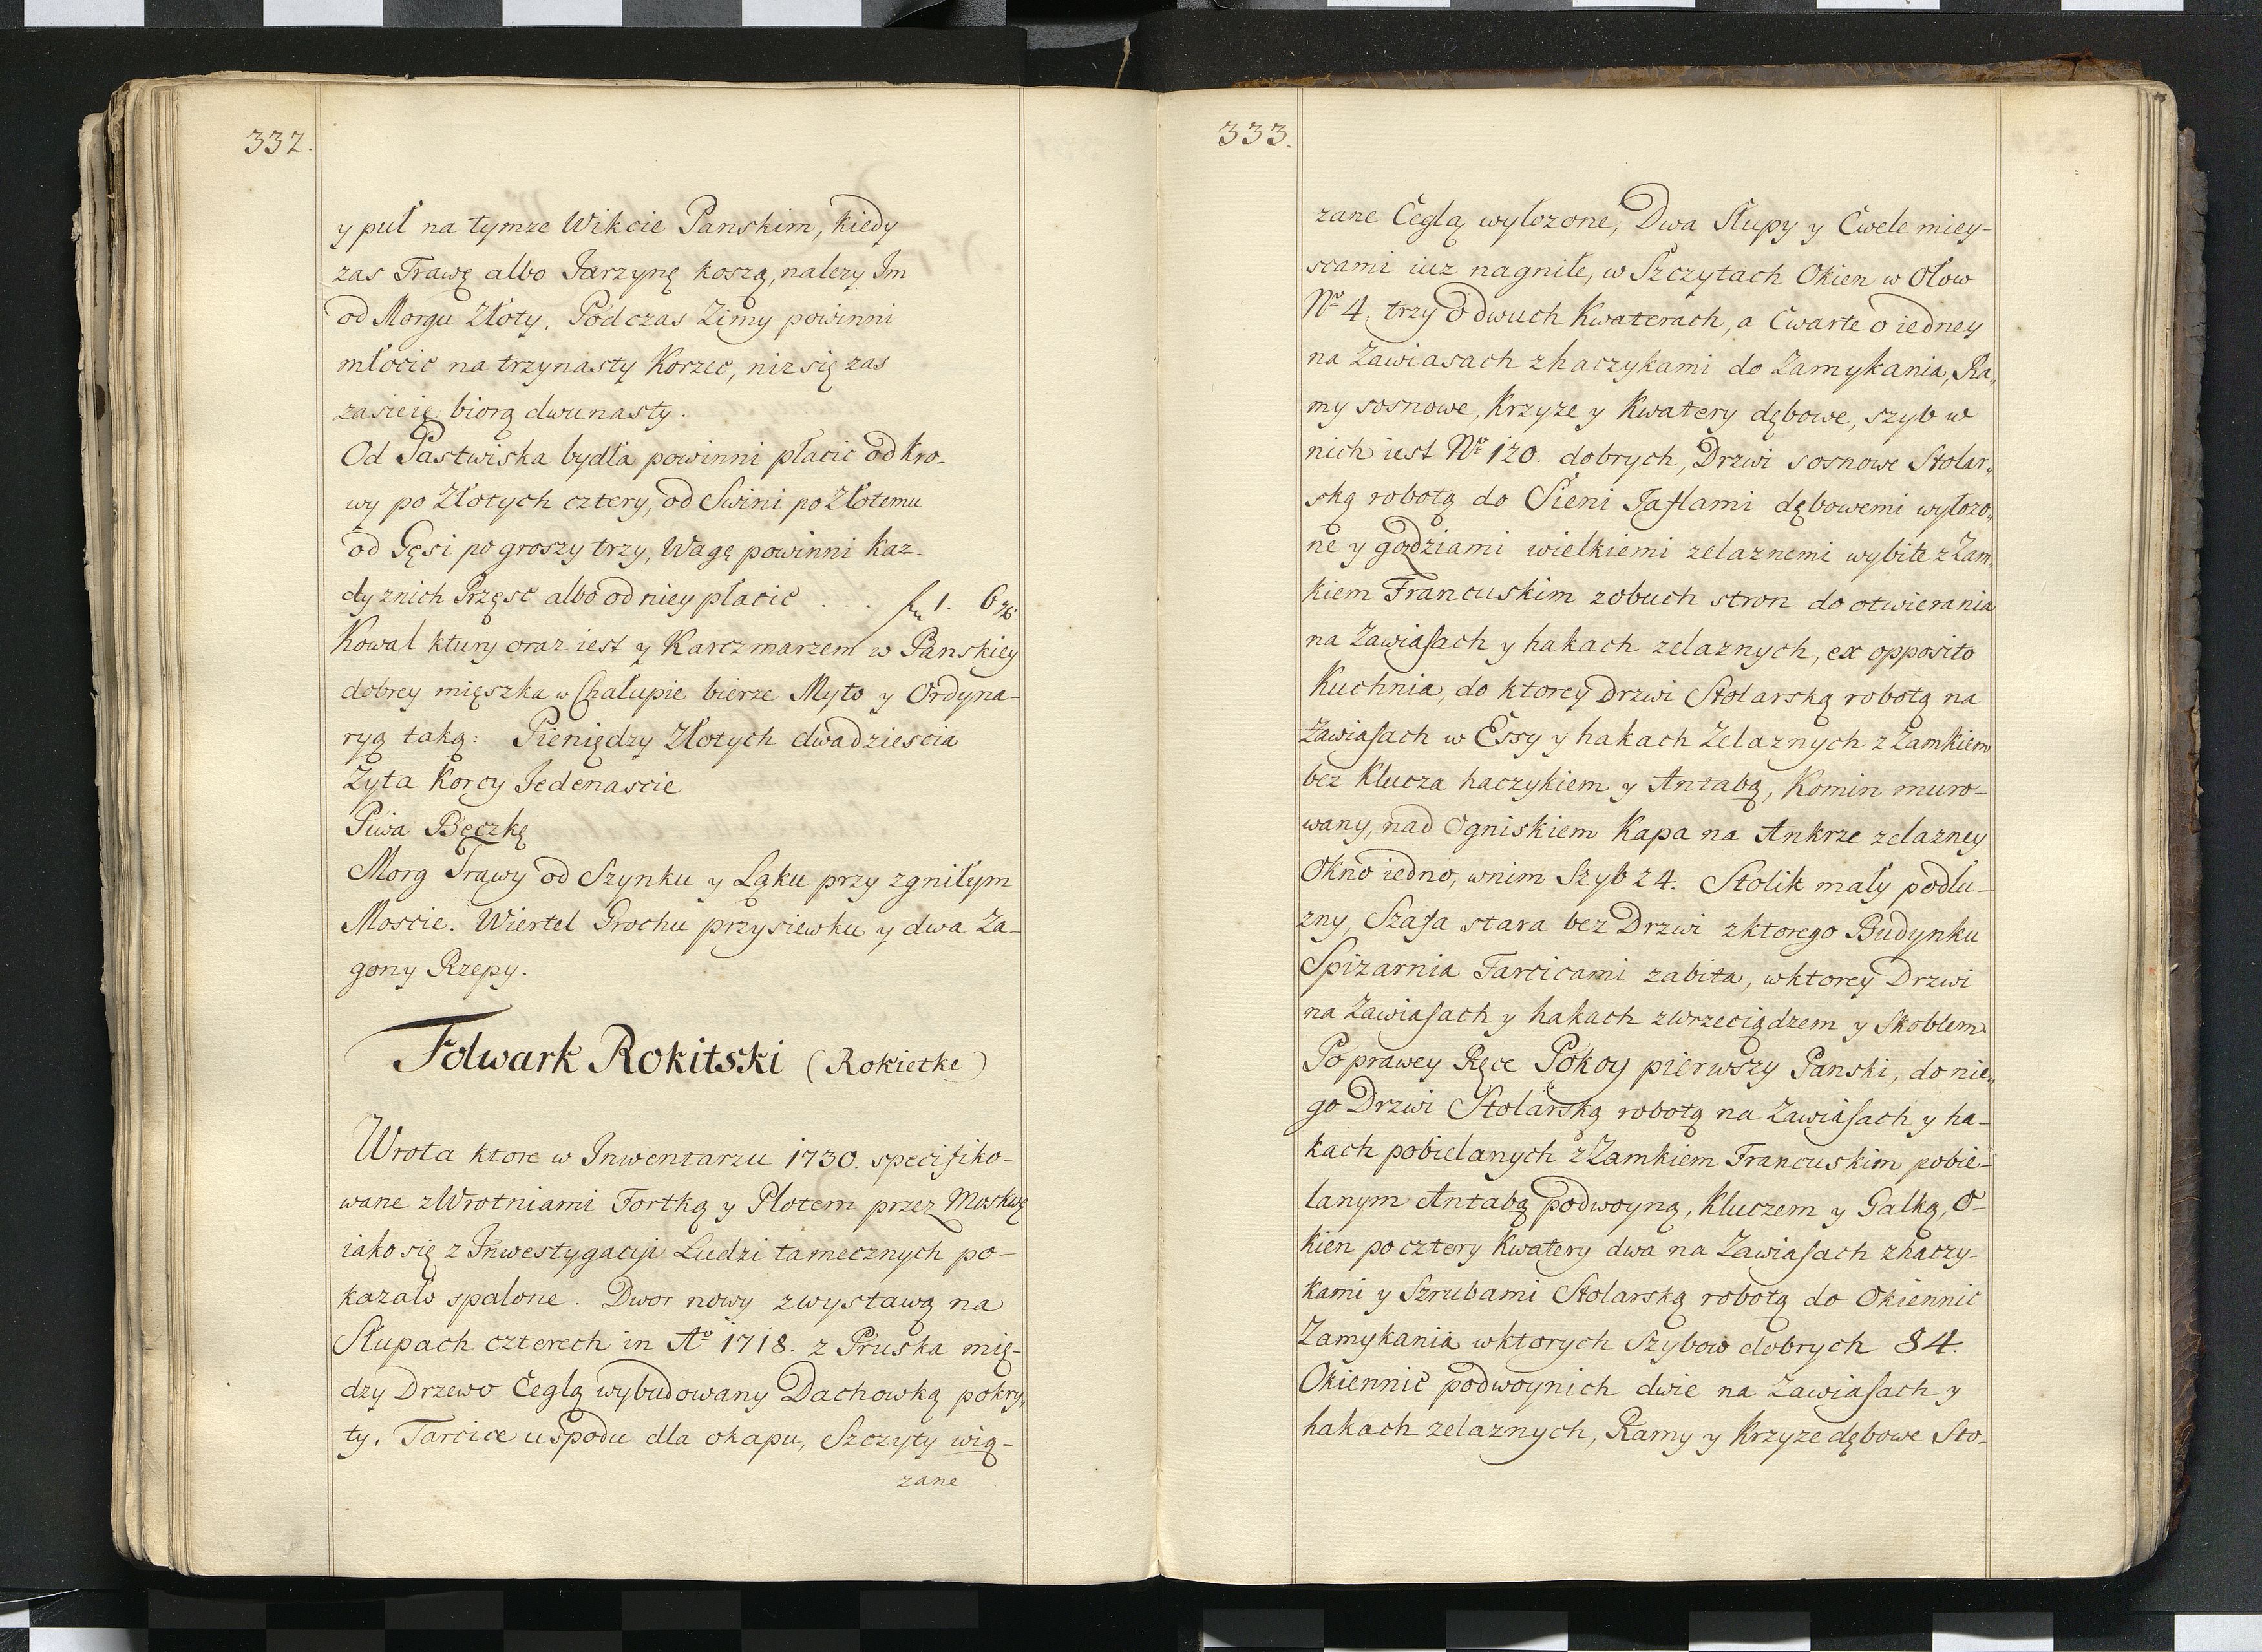 332.
y puł na tymze Wikcie Panskim, kiedy
zas Trawę albo Jarzynę koszą, nalezy Im
od Morgu Złoty. Podczas Zimy powinni
młocic na trzynasty Korzec, niz się zas
zasieię biorą dwunasty.
Od Pastwiska bydła powinni płacic od kro-
wy po Złotych cztery, od Swini po Złotemu
od Gęsi po groszy trzy, Wagę powinni kaz-
dy znich Przęsc albo od niey płacic . . . 1. 6
Kowal ktury oraz iest y Karczmarzem w Panskiey
dobrey mięszka w Chałupie bierze Myto y Ordyna-
ryą taką: Pieniędzy Złotych dwadziescia
Zyta Korcy Jedenascie
Piwa Bęczkę
Morg Trawy od Szynku y Ląku przy zgniłym
Moscie. Wiertel Grochu przysiewku y dwa Za-
gony Rzepy.
Folwark Rokitski (Rokietke)
Wrota ktore w Inwentarzu 1730. specifiko-
wane z Wrotniami Fortką y Płotem przez Moskwę
iako się z Inwestygacyi Ludzi tamecznych po-
kazało spalone. Dwor nowy zwystawą na
Słupach czterech in Aº 1718. z Pruska mię-
dzy Drzewo Cegłą wybudowany Dachowką pokry-
ty. Tarcice u spodu dla okapu, Szczyty wią-
zane
333.
zane Cegłą wyłozone, Dwa Słupy y Cwele miey-
scami iuz nagniłe, w Szczytach Okien w Ołow
Nº 4. trzy o dwuch Kwaterach, a Cwarte o iedney
na Zawiasach z haczykami do Zamykania, Ra-
my sosnowe, Krzyze y Kwatery dębowe, szyb w
nich iest Nº 120. dobrych, Drzwi sosnowe Stolar-
ską robotą do Sieni Taflami dębowemi wyłozo-
ne y gozdziami wielkiemi zelaznemi wybite z Zam-
kiem Francuskim zobuch stron do otwierania
na Zawiasach y hakach zelaznych, ex opposito
Kuchnia, do ktorey Drzwi Stolarską robotą na
Zawiasach w Essy y hakach Zelaznych z Zamkiem
bez Klucza haczykiem y Antabą, Komin muro-
wany, nad Ogniskiem Kapa na Ankrze zelazney
Okno iedno, wnim Szyb 24. Stolik mały podłu-
zny, Szafa stara bez Drzwi zktorego Budynku
Spizarnia Tarcicami zabita, wktorey Drzwi
na Zawiasach y hakach zwrzeciądzem y Skoblem.
Po prawey Ręce Pokoy pierwszy Panski, do nie-
go Drzwi Stolarską robotą na Zawiasach y ha-
kach pobielanych z Zamkiem Francuskim pobie-
lanym Antabą podwoyną, Kluczem y Gałką, O-
kien po cztery Kwatery dwa na Zawiasach z haczy-
kami y Szrubami Stolarską robotą do Okiennic
Zamykania wktorych Szybow dobrych 84.
Okiennic podwoynich dwie na Zawiasach y
hakach zelaznych, Ramy y Krzyze dębowe Sto-